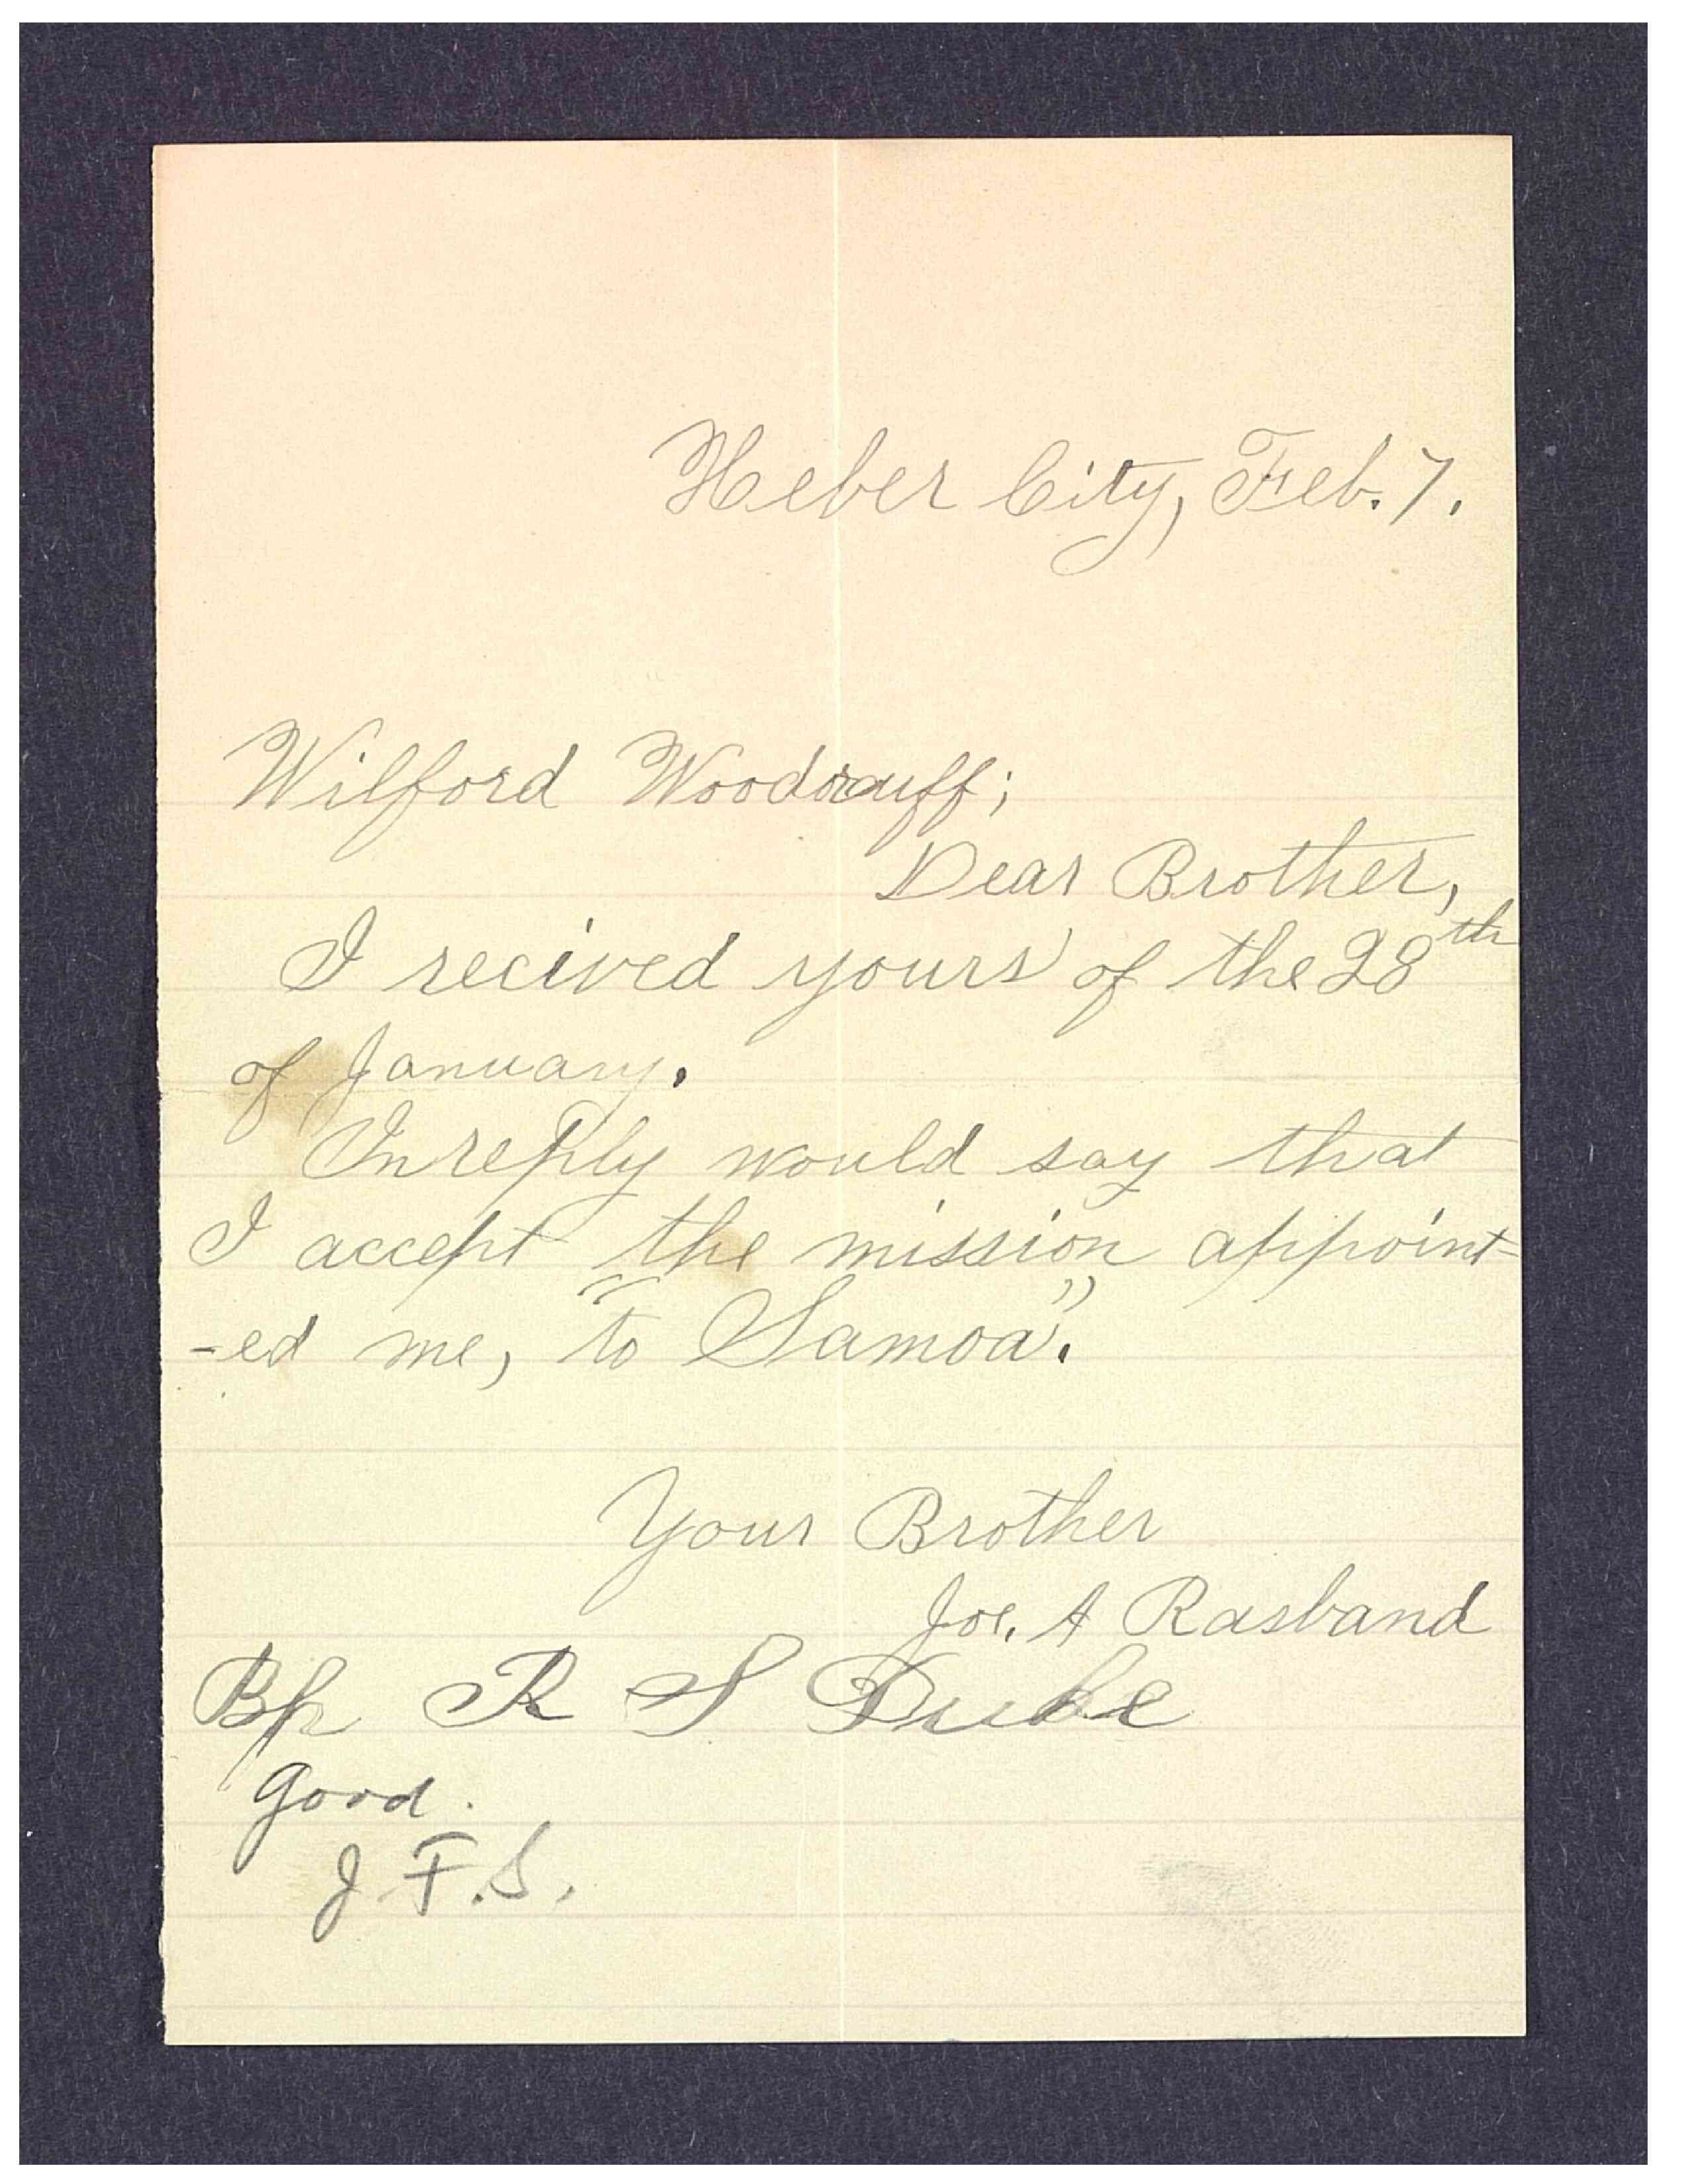 Heber City, Feb. 7.
Wilford Woodruff;
Dear Brother,
I recived yours of the 28th
of January.
In reply would say that
I accept the mission appoint-
-ed me, "to Samoa".
Your Brother
Jos. A Rasband
Bp R S Duke
Good.
J. F. S.